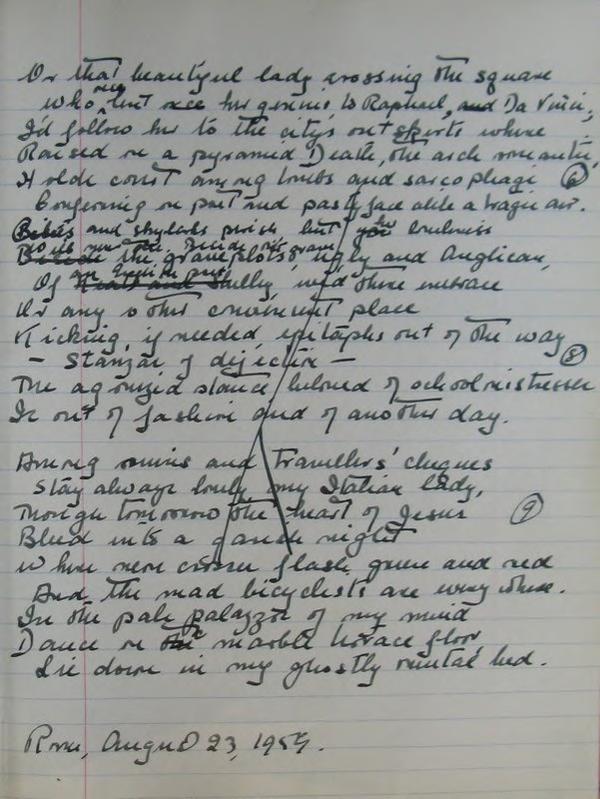 Or that beautiful lady crossing the square
who once lent her genius to Raphael, and Da Vinci,
I'd follow her to the city's outskirts where
Raised on a pyramid Death, the arch romantic,
Holds court among tombs and sarcophagi 6
Conferring on poet and past face alike a tragic air.
and skylarks perish, but your loneliness
the graveplots ugly and Anglican,
Of Shelley, need those embrace
Or any other convenient place
Kicking, if needed, epitaphs out of the way
— Stanzas of dejection — 8
The agonized stance beloved of schoolmistresses
Is out of fashion and of another day.
Among ruins and travellers' cheques
Stay always lovely my Italian lady,
Though tomorrow the heart of Jesus 9
Bleed into a garish night
Where neon crosses flash green and red
And the mad bicyclists are everywhere.
In the pale palazzo of my mind
Dance on the marble terrace floor,
Lie down in my ghostly rental bed.
Rome, August 23, 1959.